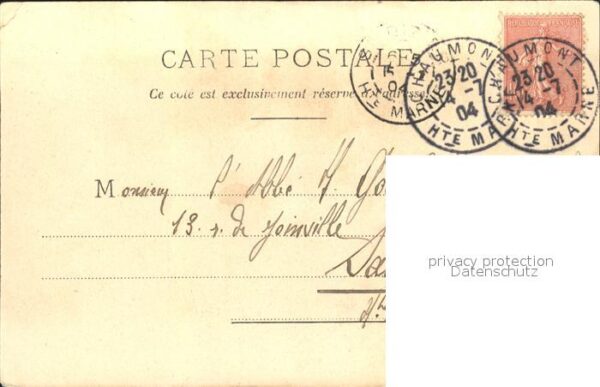 RÉPUBLIQUE FRANÇAISE
CARTE POSTALE
CHAUMONT
23 20
14 -7
04
HTE MARNE
CHAUMONT
23 20
14 -7
04
HTE MARNE
15
04
HTE MARNE
Ce côté est exclusivement réservé à l'adresse
Monsieur l'Abbé
13. r. de Joinville
privacy protection
Datenschutz